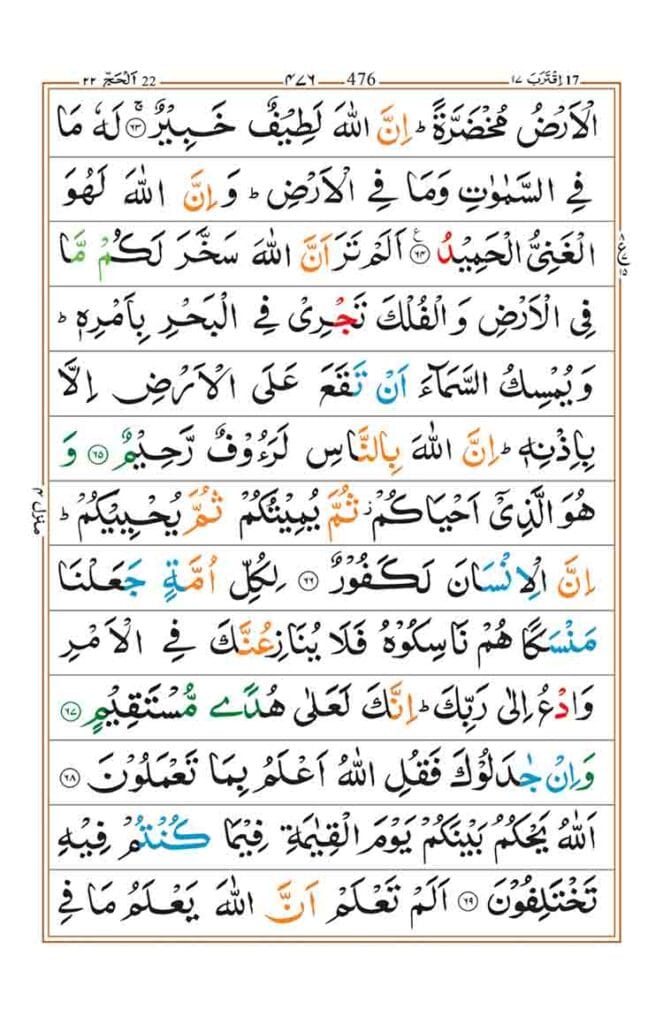 ١٧ اِقْتَرَبَ 17 ٤٧٦ 476 ٢٢ اَلْحَجّ 22
الْاَرْضُ مُخْضَرَّةً ؕ اِنَّ اللّٰهَ لَطِيْفٌ خَبِيْرٌ ۚ‏﴿۶۳﴾ لَهٗ مَا
فِي السَّمٰوٰتِ وَمَا فِي الْاَرْضِ ؕ وَاِنَّ اللّٰهَ لَهُوَ
الْغَنِيُّ الْحَمِيْدُ ﴿۶۴﴾ اَلَمْ تَرَ اَنَّ اللّٰهَ سَخَّرَ لَكُمْ مَّا
فِي الْاَرْضِ وَالْفُلْكَ تَجْرِيْ فِي الْبَحْرِ بِاَمْرِهٖ ؕ
وَيُمْسِكُ السَّمَآءَ اَنْ تَقَعَ عَلَى الْاَرْضِ اِلَّا
بِاِذْنِهٖ ؕ اِنَّ اللّٰهَ بِالنَّاسِ لَرَءُوْفٌ رَّحِيْمٌ ﴿۶۵﴾ وَ
هُوَ الَّذِيْٓ اَحْيَاكُمْ ؗ ثُمَّ يُمِيْتُكُمْ ثُمَّ يُحْيِيْكُمْ ؕ
اِنَّ الْاِنْسَانَ لَكَفُوْرٌ ﴿۶۶﴾ لِكُلِّ اُمَّةٍ جَعَلْنَا
مَنْسَكًا هُمْ نَاسِكُوْهُ فَلَا يُنَازِعُنَّكَ فِي الْاَمْرِ
وَادْعُ اِلٰى رَبِّكَ ؕ اِنَّكَ لَعَلٰى هُدًى مُّسْتَقِيْمٍ ﴿۶۷﴾
وَاِنْ جٰدَلُوْكَ فَقُلِ اللّٰهُ اَعْلَمُ بِمَا تَعْمَلُوْنَ ﴿۶۸﴾
اَللّٰهُ يَحْكُمُ بَيْنَكُمْ يَوْمَ الْقِيٰمَةِ فِيْمَا كُنْتُمْ فِيْهِ
تَخْتَلِفُوْنَ ﴿۶۹﴾ اَلَمْ تَعْلَمْ اَنَّ اللّٰهَ يَعْلَمُ مَا فِي
منزل ۴